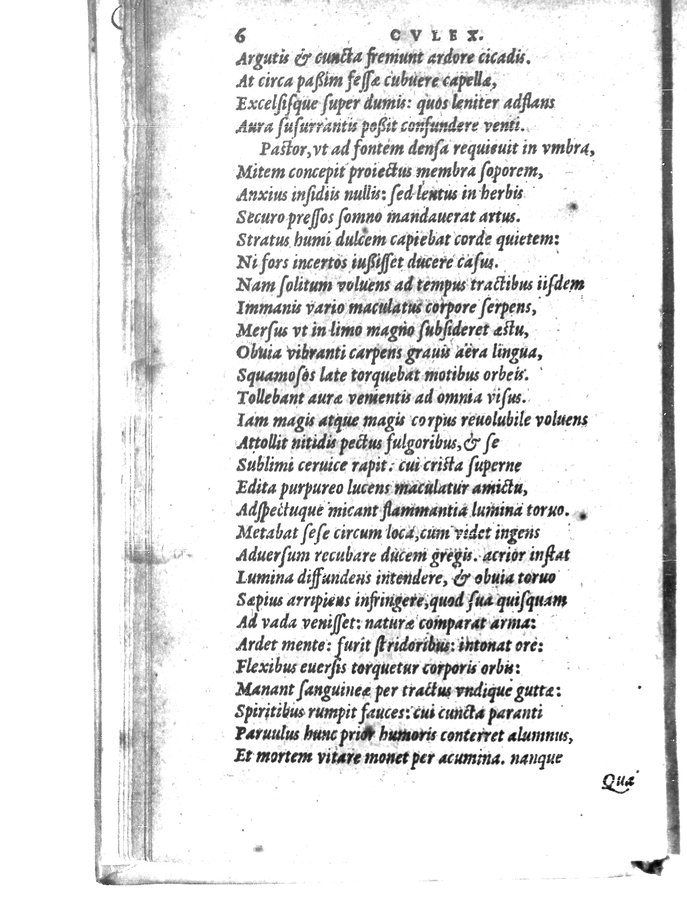 6 CVLEX.
Argutis & cuncta fremunt ardore cicadis.
At circa paßim feſſæ cubuere capellæ,
Excelſiſque ſuper dumis: quos leniter adflans
Aura ſuſurrantis poßit confundere venti.
Paſtor, vt ad fontem denſa requieuit in vmbra,
Mitem concepit proiectus membra ſoporem,
Anxius inſidiis nullis: ſed lentus in herbis
Securo preſſos ſomno mandauerat artus.
Stratus humi dulcem capiebat corde quietem:
Ni fors incertos iußiſſet ducere caſus.
Nam ſolitum voluens ad tempus tractibus iiſdem
Immanis vario maculatus corpore ſerpens,
Merſus vt in limo magno ſubſideret æſtu,
Obuia vibranti carpens grauis aëra lingua,
Squamoſos late torquebat motibus orbeis.
Tollebant auræ venientis ad omnia viſus.
Iam magis atque magis corpus reuolubile voluens
Attollit nitidis pectus fulgoribus, & ſe
Sublimi ceruice rapit: cui criſta ſuperne
Edita purpureo lucens maculatur amictu,
Adſpectuque micant flammantia lumina toruo.
Metabat ſeſe circum loca, cùm videt ingens
Aduerſum recubare ducem gregis. acrior inſtat
Lumina diffundens intendere, & obuia toruo
Sæpius arripiens infringere, quod ſua quiſquam
Ad vada veniſſet: naturæ comparat arma:
Ardet mente: furit ſtridoribus: intonat ore:
Flexibus euerſis torquetur corporis orbis:
Manant ſanguineæ per tractus vndique guttæ:
Spiritibus rumpit fauces: cui cuncta paranti
Paruulus hunc prior humoris conterret alumnus,
Et mortem vitare monet per acumina. nanque
Quà